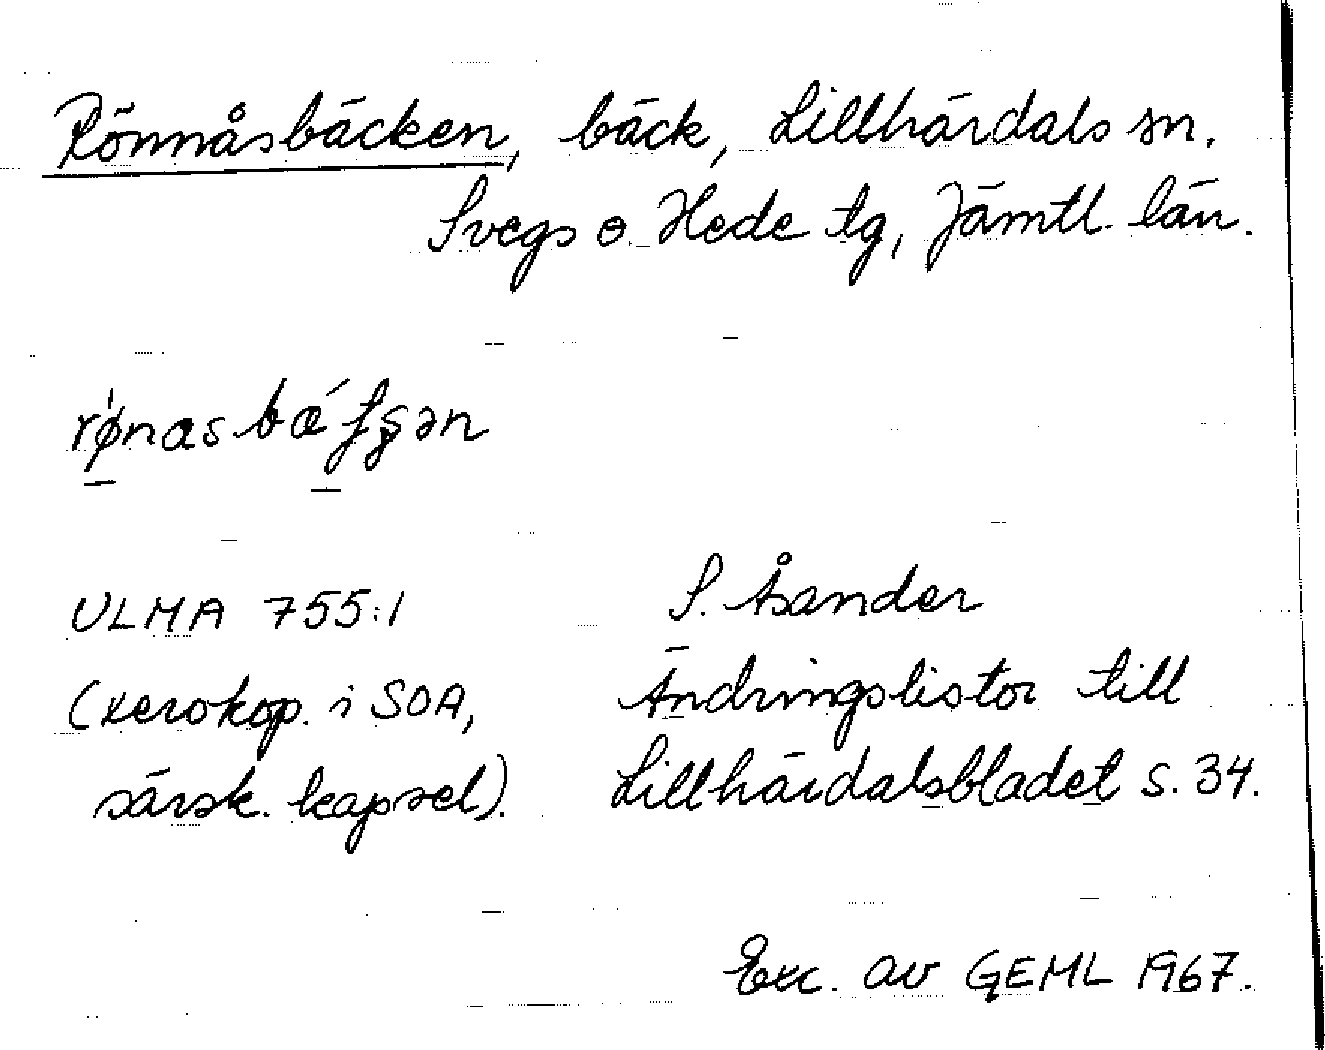 Rönnåsbäcken, bäck, Lillhärdals sn.
Svegs o Hede tg, Jämtl. län.
ULMA 755:1
S. Åsander
(xerokop. i SOA,
Ändringslistor till
särsk. kapsel).
Lillhärdalsbladet s. 34.
Exc. av GEML 1967.